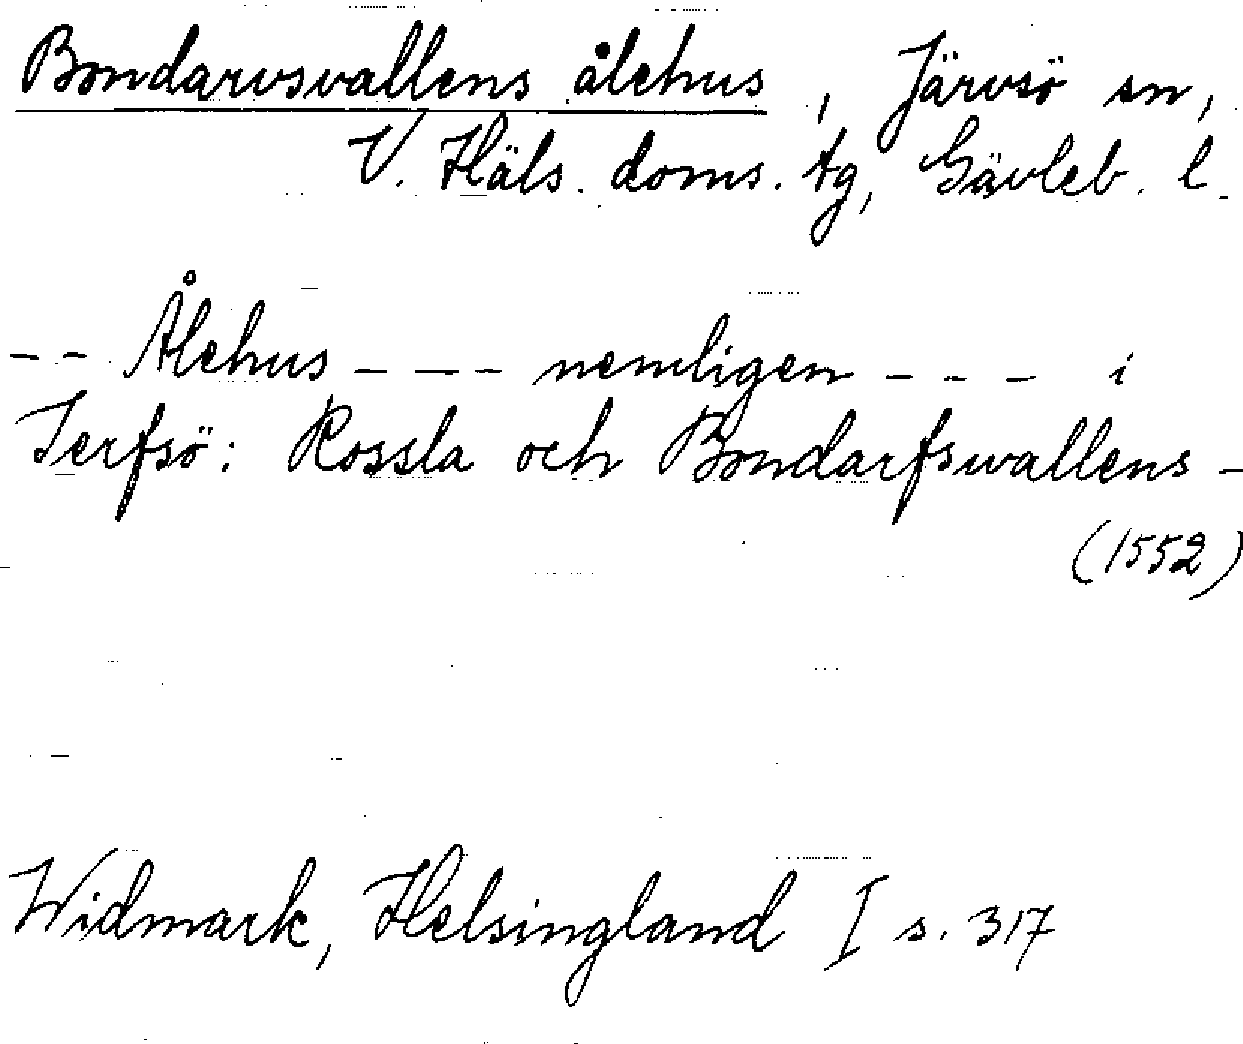 Bondarvsvallens ålehus, Järvsö sn,
V. Häls. doms. tg, Gävleb. l.
-- Ålehus --- nemligen --- i
Jerfsö: Rossla och Bondarfswallens -
(1552)
Widmark, Helsingland I s. 317